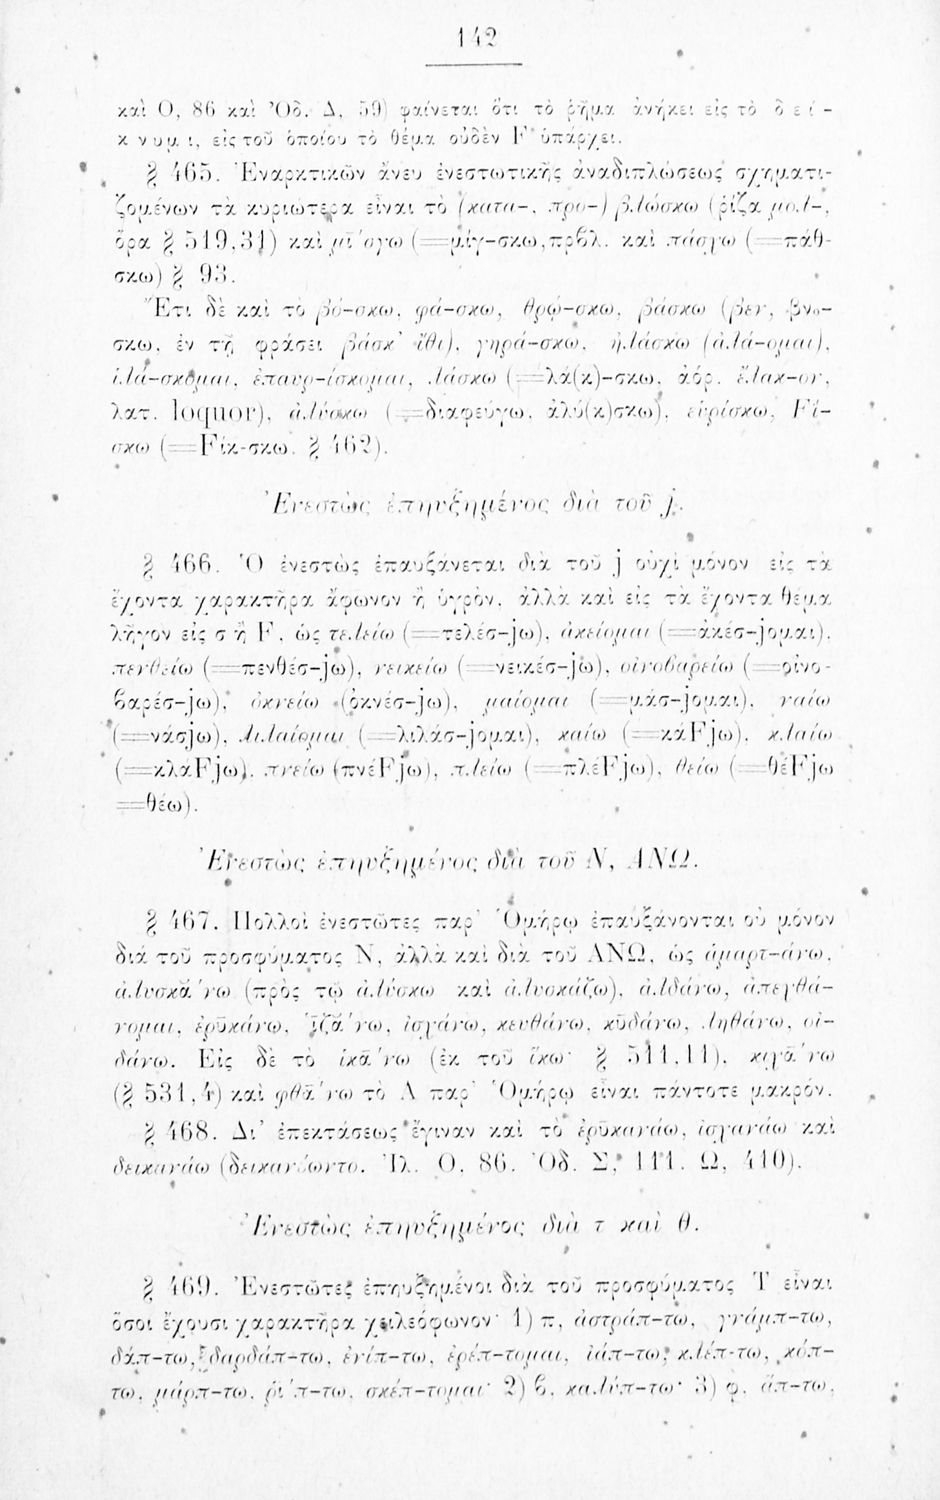 142
καὶ Ο, 86 καὶ Ὀδ. Δ, 59) φαίνεται ὅτι τὸ ῥῆμα ἀνήκει εἰς τὸ δεί-
κνυμι, εἰς τοῦ ὁποίου τὸ θέμα οὐδὲν F ὑπάρχει.
§ 465. Ἐναρκτικῶν ἄνευ ἐνεστωτικῆς ἀναδιπλώσεως σχηματι-
ζομένων τὰ κυριώτερα εἶναι τὸ (κατα-, προ-) βλώσκω (ῥίζα μολ-,
ὅρα § 519,31) καὶ μῑ́σγω (=μίγ-σκω, πρβλ. καὶ πάσχω (=πάθ-
σκω) § 93.
Ἔτι δὲ καὶ τὸ βό-σκω, φά-σκω, θρῴ-σκω, βάσκω (βεν, βνο-
σκω, ἐν τῇ φράσει βάσκ' ἴθι), γηρά-σκω, ἠλάσκω (ἀλά-ομαι),
ἱλά-σκομαι, ἐπαυρ-ίσκομαι, λάσκω (=λά(κ)-σκω, ἀόρ. ἔλακ-ον,
λατ. loquor), ἀλύσκω (=διαφεύγω, ἀλύ(κ)σκω), εὑρίσκω, Fί-
σκω (=Fίκ-σκω. § 462).
Ἐνεστὼς ἐπηυξημένος διὰ τοῦ j.
§ 466. Ὁ ἐνεστὼς ἐπαυξάνεται διὰ τοῦ j οὐχὶ μόνον εἰς τὰ
ἔχοντα χαρακτῆρα ἄφωνον ἢ ὑγρὸν, ἀλλὰ καὶ εἰς τὰ ἔχοντα θέμα
λῆγον εἰς σ ἢ F, ὡς τελείω (=τελέσ-jω), ἀκείομαι (=ἀκέσ-jομαι),
πενθείω (=πενθέσ-jω), νεικείω (=νεικέσ-jω), οἰνοβαρείω (=οἰνο-
βαρέσ-jω), ὀκνείω (ὀκνέσ-jω), μαίομαι (=μάσ-jομαι), ναίω
(=νάσjω), λιλαίομαι (=λιλάσ-jομαι), καίω (=κάFjω), κλαίω
(=κλάFjω), πνείω (πνέFjω), πλείω (=πλέFjω), θείω (=θέFjω
=θέω).
Ἐνεστὼς ἐπηυξημένος διὰ τοῦ Ν, ΑΝΩ.
§ 467. Πολλοὶ ἐνεστῶτες παρ' Ὁμήρῳ ἐπαυξάνονται οὐ μόνον
διὰ τοῦ προσφύματος Ν, ἀλλὰ καὶ διὰ τοῦ ΑΝΩ, ὡς ἁμαρτ-άνω,
ἀλυσκᾱ́νω (πρὸς τῷ ἀλύσκω καὶ ἀλυσκάζω), ἀλδάνω, ἀπεχθά-
νομαι, ἐρῡκάνω, ἱζᾱ́νω, ἰσχάνω, κευθάνω, κῡδάνω, ληθάνω, οἰ-
δάνω. Εἰς δὲ τὸ ἱκᾱ́νω (ἐκ τοῦ ἵκω· § 511,11), κιχᾱ́νω
(§ 531,4) καὶ φθᾱ́νω τὸ Α παρ' Ὁμήρῳ εἶναι πάντοτε μακρόν.
§ 468. Δι' ἐπεκτάσεως ἔγιναν καὶ τὸ ἐρῡκανάω, ἰσχανάω καὶ
δεικανάω (δεικανόωντο. Ἰλ. Ο, 86. Ὀδ. Σ, 111. Ω, 410).
Ἐνεστὼς ἐπηυξημένος διὰ τ καὶ θ.
§ 469. Ἐνεστῶτες ἐπηυξημένοι διὰ τοῦ προσφύματος Τ εἶναι
ὅσοι ἔχουσι χαρακτῆρα χειλεόφωνον· 1) π, ἀστράπ-τω, γνάμπ-τω,
δάπ-τω, δαρδάπ-τω, ἐνίπ-τω, ἐρέπ-τομαι, ἰάπ-τω, κλέπ-τω, κόπ-
τω, μάρπ-τω, ῥῑ́π-τω, σκέπ-τομαι· 2) β, καλύπ-τω· 3) φ, ἅπ-τω,